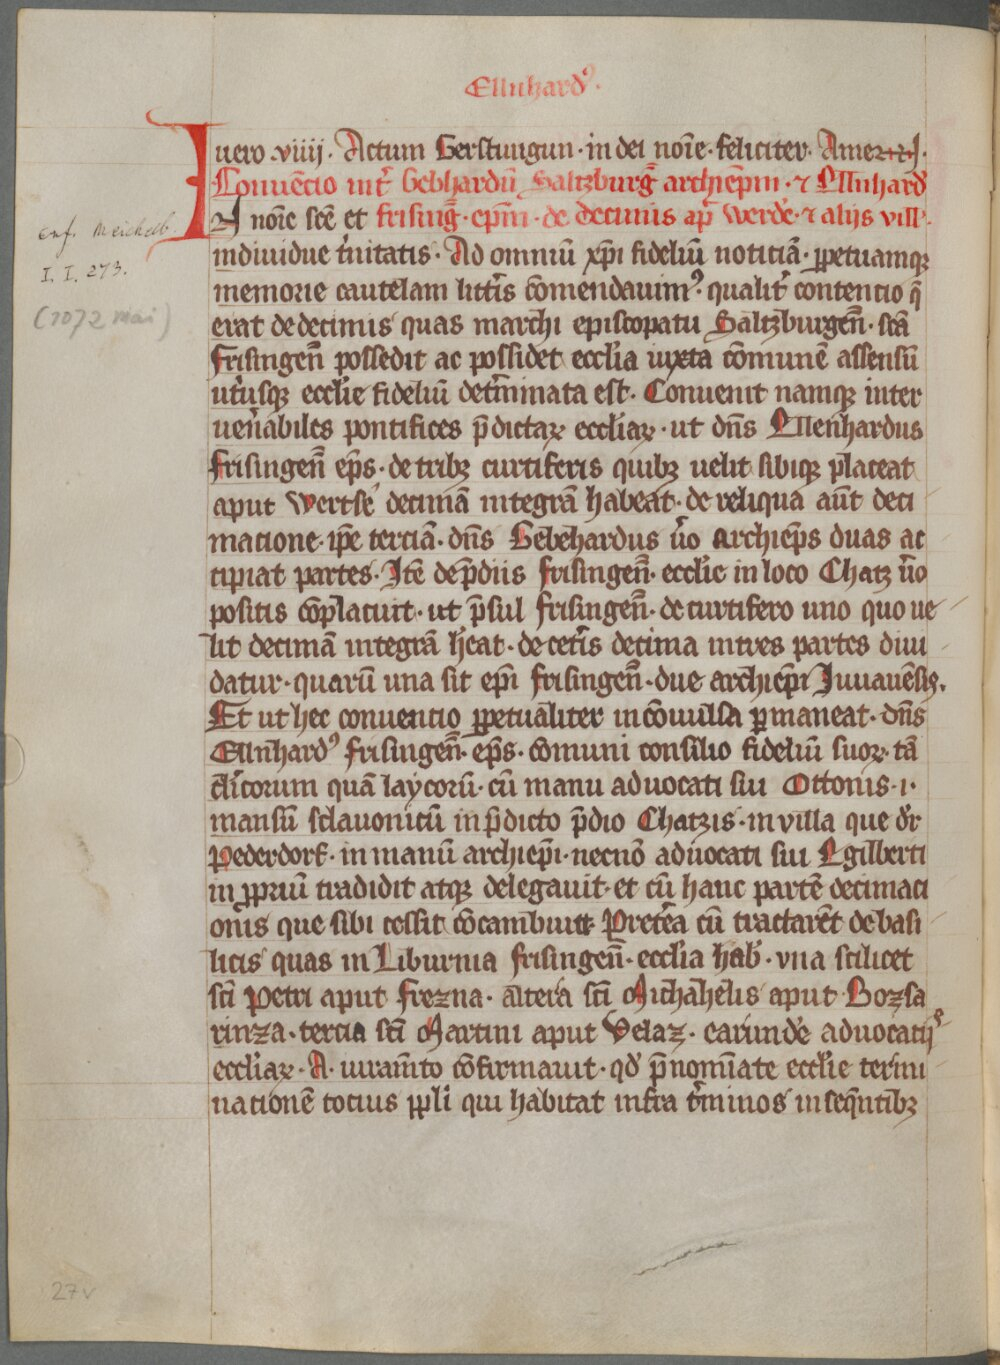 Ellnhardꝰ.
uero .viiij. Actum Gerstungun · in dei noīe · feliciter · Amen.
Conuēcio int̄ Gebhardū Saltzburḡ archiep̄m · ⁊ Ellnhard̄
I noīe scē et frisinḡ · ep̄m · de decimis ap̄ werde · ⁊ alijs vill·
indiuidue t̄nitatis · Ad omniū xp̄i fideliū noticiā · ꝑpetuamqꝫ
memorie cautelam litt̄is cōmendauimꝰ · qualit̄ contentio q̄
erat de decimis quas marchi episcopatu Saltzburgen̄ · scā
frisingen̄ possedit ac possidet eccl̄ia iuxta cōmunē assensū
ut̄usqꝫ eccl̄ie fideliū det̄minata est · Conuenit namqꝫ inter
uen̄abiles pontifices p̄dictaꝝ eccl̄iaꝝ · ut dn̄s Ellenhardus
frisingen̄ ep̄s · de tribꝫ curtiferis quibꝫ uelit sibiqꝫ placeat
aput Wertse decimā integrā habeat · de reliqua aūt deci
macione · ip̄e terciā · dn̄s Gebehardus ūo archiep̄s duas ac
cipiat partes · Itē de p̄diis frisingen̄ · eccl̄ie in loco Chatz ūo
positis cōplacuit · ut p̄sul frisingen̄ · de curtifero uno quo ue
lit decimā integrā h̄eat · de cet̄is decima in tres partes diui
datur · quarū una sit ep̄i frisingen̄ · due archiep̄i Iuuauēsis.
Et ut hec conuentio ꝑpetualiter incōuulsa ꝑmaneat · dn̄s
Ellnhardꝰ frisingen̄ · ep̄s · cōmuni consilio fideliū suoꝝ · tā
cl̄icorum quā laycorū · cū manu aduocati sui Ottonis · i ·
mansū sclauonicū in p̄dicto p̄dio Chatzis · in villa que dr̄
Pederdorf · in manū archiep̄i · necnō aduocati sui Egilberti
in ꝓpriū tradidit atqꝫ delegauit · et cū hanc partē decimaci
onis que sibi cessit cōcambiuit · Pretēa cū tractarēt de basi
licis quas in Liburnia frisingen̄ · eccl̄ia hab̄ · vna scilicet
sc̄i Petri aput Frezna · altera sc̄i Michahelis aput Bozsa
rinza · tercia sc̄i Martini aput Velaz · earunde aduocatiꝰ
eccl̄iaꝝ · A · iuram̄to cōfirmauit · qd̄ p̄nomīate eccl̄ie termi
nationē tocius ppl̄i qui habitat infra t̄minos inseqūtibꝫ
Cnf. Meichelb.
I. I. 273.
(1072 mai)
27v